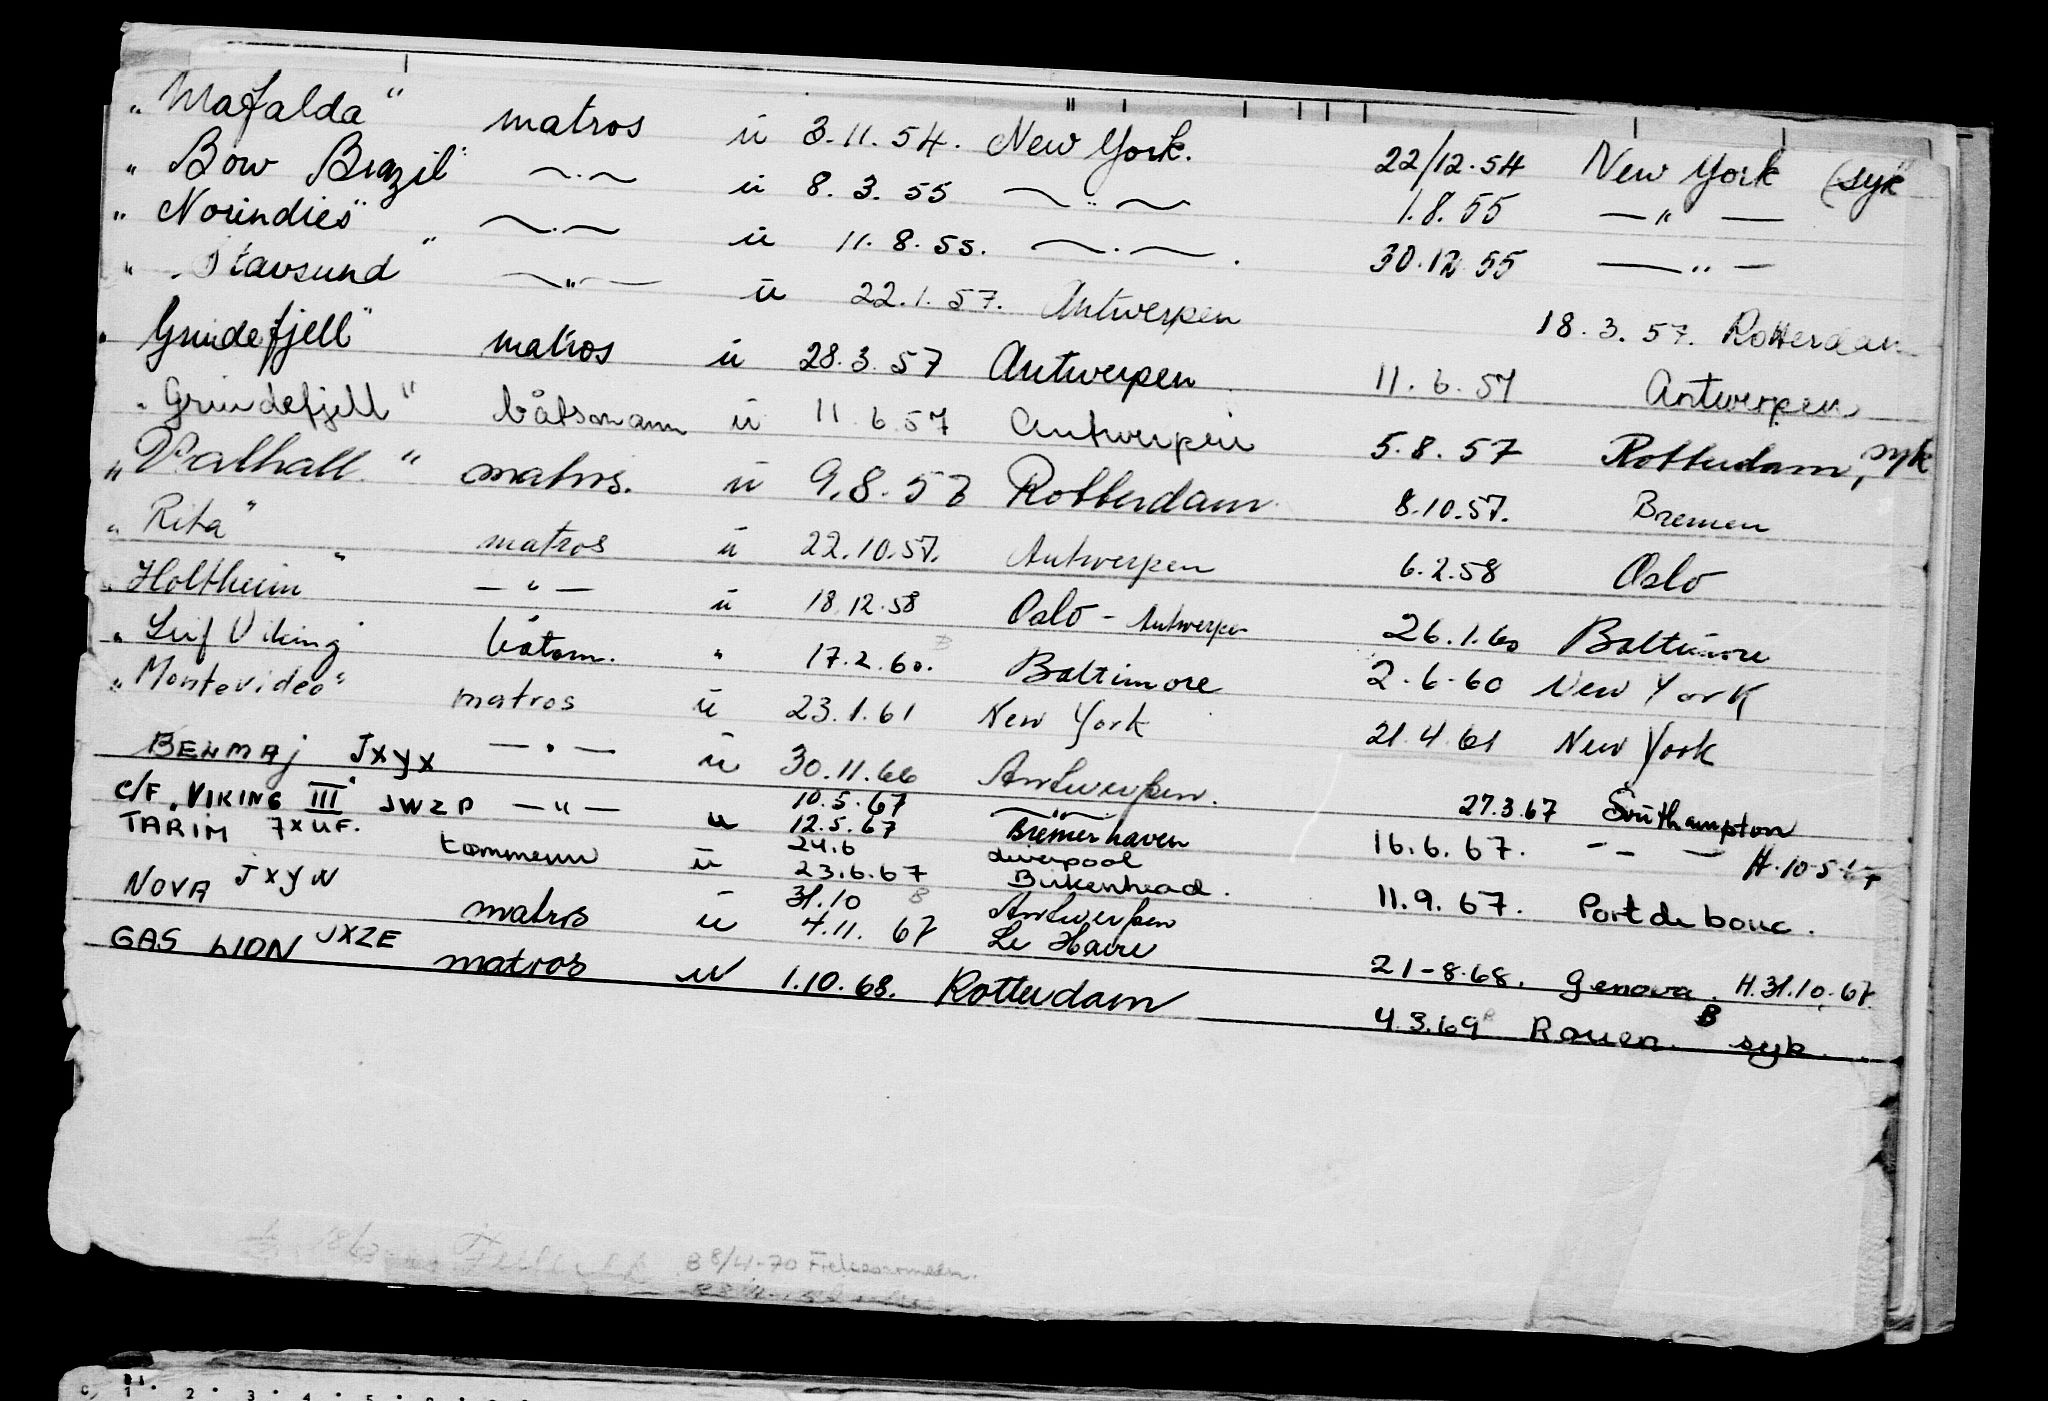 „ Mafalda“ matros u 3.11.54. New York. 22/12.54 New York (syk
„ Bow Brazil“ ~.~ u 8.3.55 ~ " ~ 1.8.55 — " —
„ Norindies“ ~.~ u 11.8.55. ~.~. 30.12.55 — " —
„ Stavsund“ ~ " — u 22.1.57. Antwerpen 18.3.57. Rotterdam
„ Grindefjell“ matros u 28.3.57 Antwerpen 11.6.57 Antwerpen
„ Grindefjell“ båtsmann u 11.6.57 Antwerpen 5.8.57 Rotterdam, syk
„ Valhall“ matros. u 9.8.57 Rotterdam 8.10.57. Bremen
„ Rita“ matros u 22.10.57. Antwerpen 6.2.58 Oslo
„ Holtheim“ — " — u 18.12.58 Oslo - Antwerpen 26.1.60 Baltimore
„ Leif Viking“ båtsm. " 17.2.60. Baltimore 2.6.60 New York
„ Montevideo“ matros u 23.1.61 New York 21.4.61 New York
BENMAJ JXYX — " — u 30.11.66 Antwerpen. 27.3.67 Southampton
C/F „VIKING III“ JWZP — " — u 10.5.67 — " — 16.6.67. - - — H.10.5.67
12.5.67 Bremerhaven
TARIM JXUF. tømmerm u 24.6 Liverpool 11.9.67. Port de bouc.
23.6.67 Birkenhead.
NOVA JXYW matros u 31.10 B Antwerpen 21-8.68. Genova. H.31.10.67
4.11.67 Le Havre
GAS LION JXZE matros u 1.10.68. Rotterdam 4.3.69 B Rouen. B syk.
B 8/4-70
C, 1 2 3 4 5